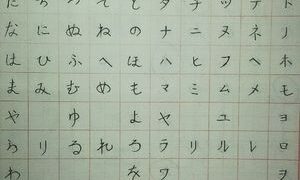 た ち つ て と タ チ ッ テ ト
な に ぬ ね の ナ ニ ヌ ネ ノ
は ひ ふ へ ほ ハ ヒ フ ヘ ホ
ま み む め も マ ミ ム メ モ
や ゆ よ ヤ ユ ヨ
ら り る れ ろ ラ リ ル レ ロ
わ を ワ ヲ